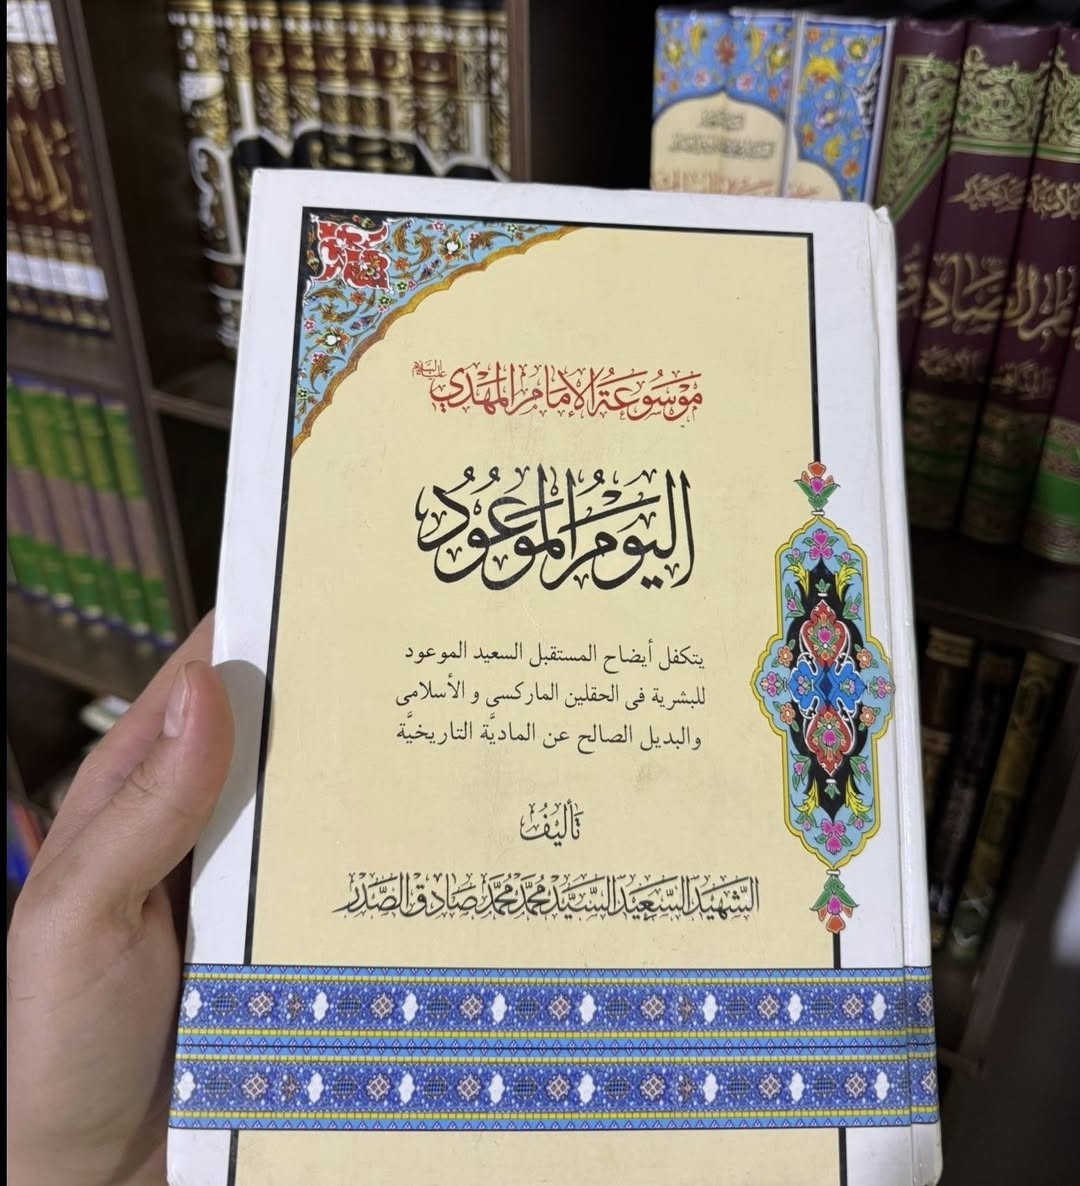 موسوعة الإمام المهدي عليه السلام
اليوم الموعود
يتكفل أيضاح المستقبل السعيد الموعود
للبشرية فى الحقلين الماركسى و الأسلامى
والبديل الصالح عن الماديَّة التاريخيَّة
تأليف
الشهيد السعيد السيد محمد محمد صادق الصدر